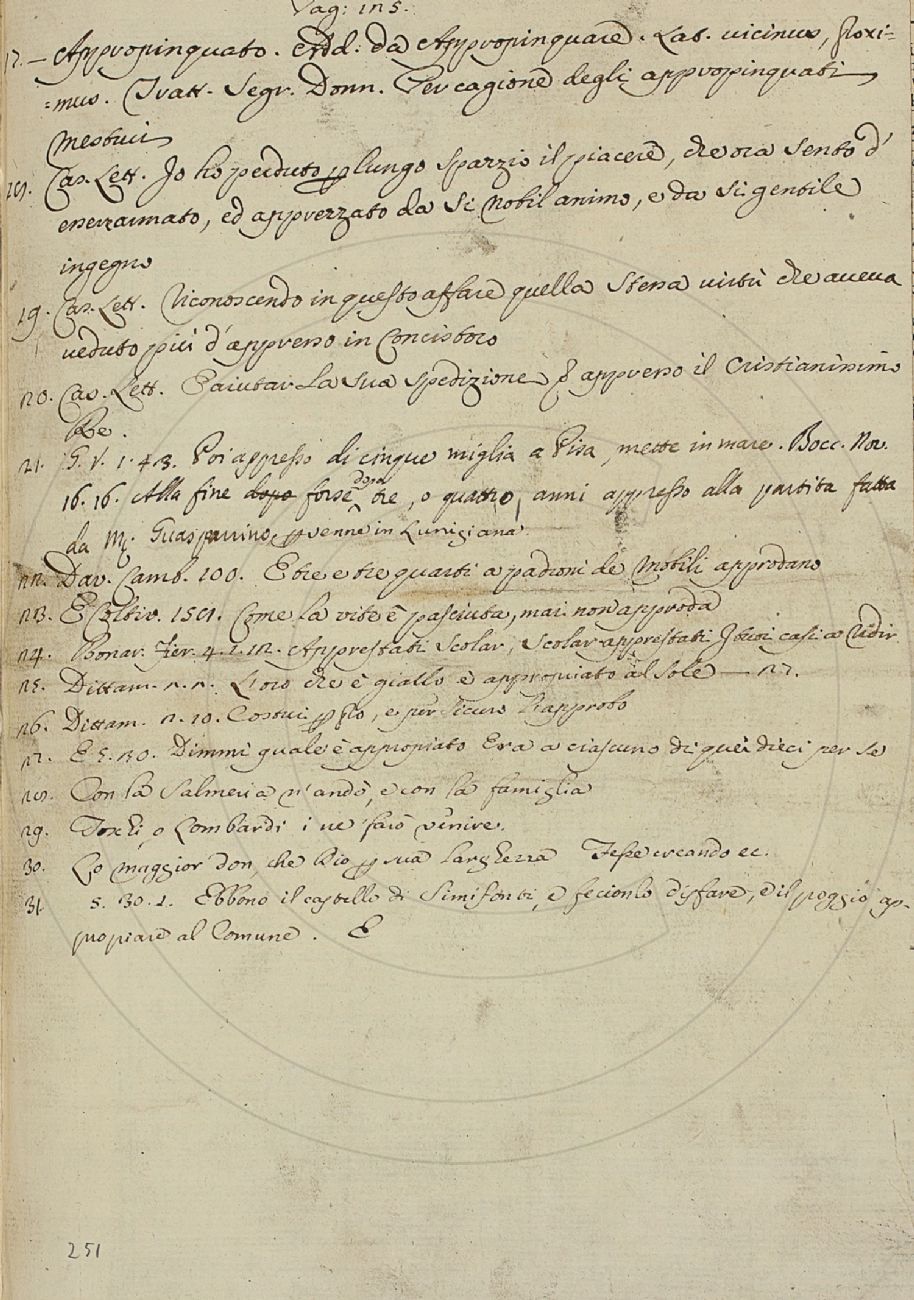 Pag: 125.
17. — Appropinquato. Add: da Appropinquare. Lat. vicinus, proxi=
=mus. Tratt. Segr. Donn. Per cagione degli appropinquati
mestrui
18. Cas. Lett. Io ho perduto p lungo spazzio il piacere, che ora sento d'
esser amato, ed apprezzato da si nobil animo, e da si gentile
ingegno
19. Cas. Lett. Riconoscendo in questo affare quella stessa virtù che aveva
veduto più d'appresso in Concistoro
20. Cas. Lett. E aiutar la sua spedizione appresso il Cristianissimo
Re.
21. G. V. 1. 43. Poi appresso di cinque miglia a Pisa, mette in mare. Bocc. Nov.
16. 16. Alla fine dopo forse dopo tre, o quattro, anni appresso alla partita fatta
da M. Guasparrino, pvenne in Lunigiana
22. Dav. Camb. 100. E tre e tre quarti a padroni de Mobili approdano
23. E Coltiv. 158. Come la vite è pasciuta, mai non approda
24. Bonar. Fier. 4. 1. 12. Apprestati Scolar, Scolar apprestati I tuoi casi a udir
25. Dittam. 2. 2. L'oro che è giallo è appropiato al Sole — 27.
26. Dittam. 2. 10. Costui p flo, e per sicuro l'approbo
27. E 5. 30. Dimmi quale è appropiato Era a ciascuno di quei dieci per se
28. Con la Salmeria n'andò, e con la famiglia
29. Toschi, o Lombardi i ne farò venire.
30. Lo maggior don, che Dio p sua larghezza Fesse creando ec.
31. 5. 30. 1. Ebbono il castello di Simifonti, e fecionlo disfare, e il poggio ap-
propiare al Comune. E
251